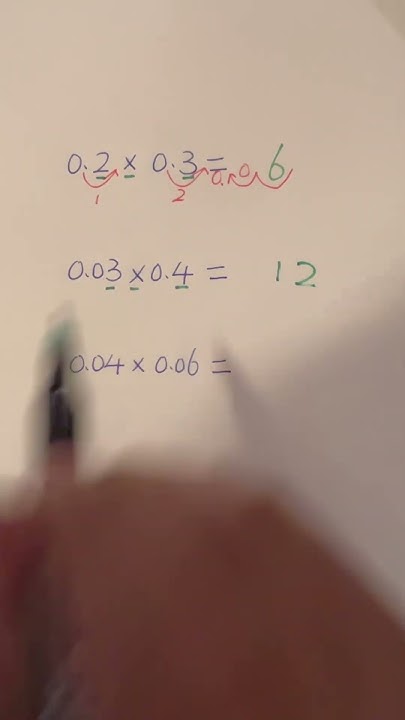 0.2 x 0.3 = 0.06
1 2
0.03 x 0.4 = 12
0.04 x 0.06 =